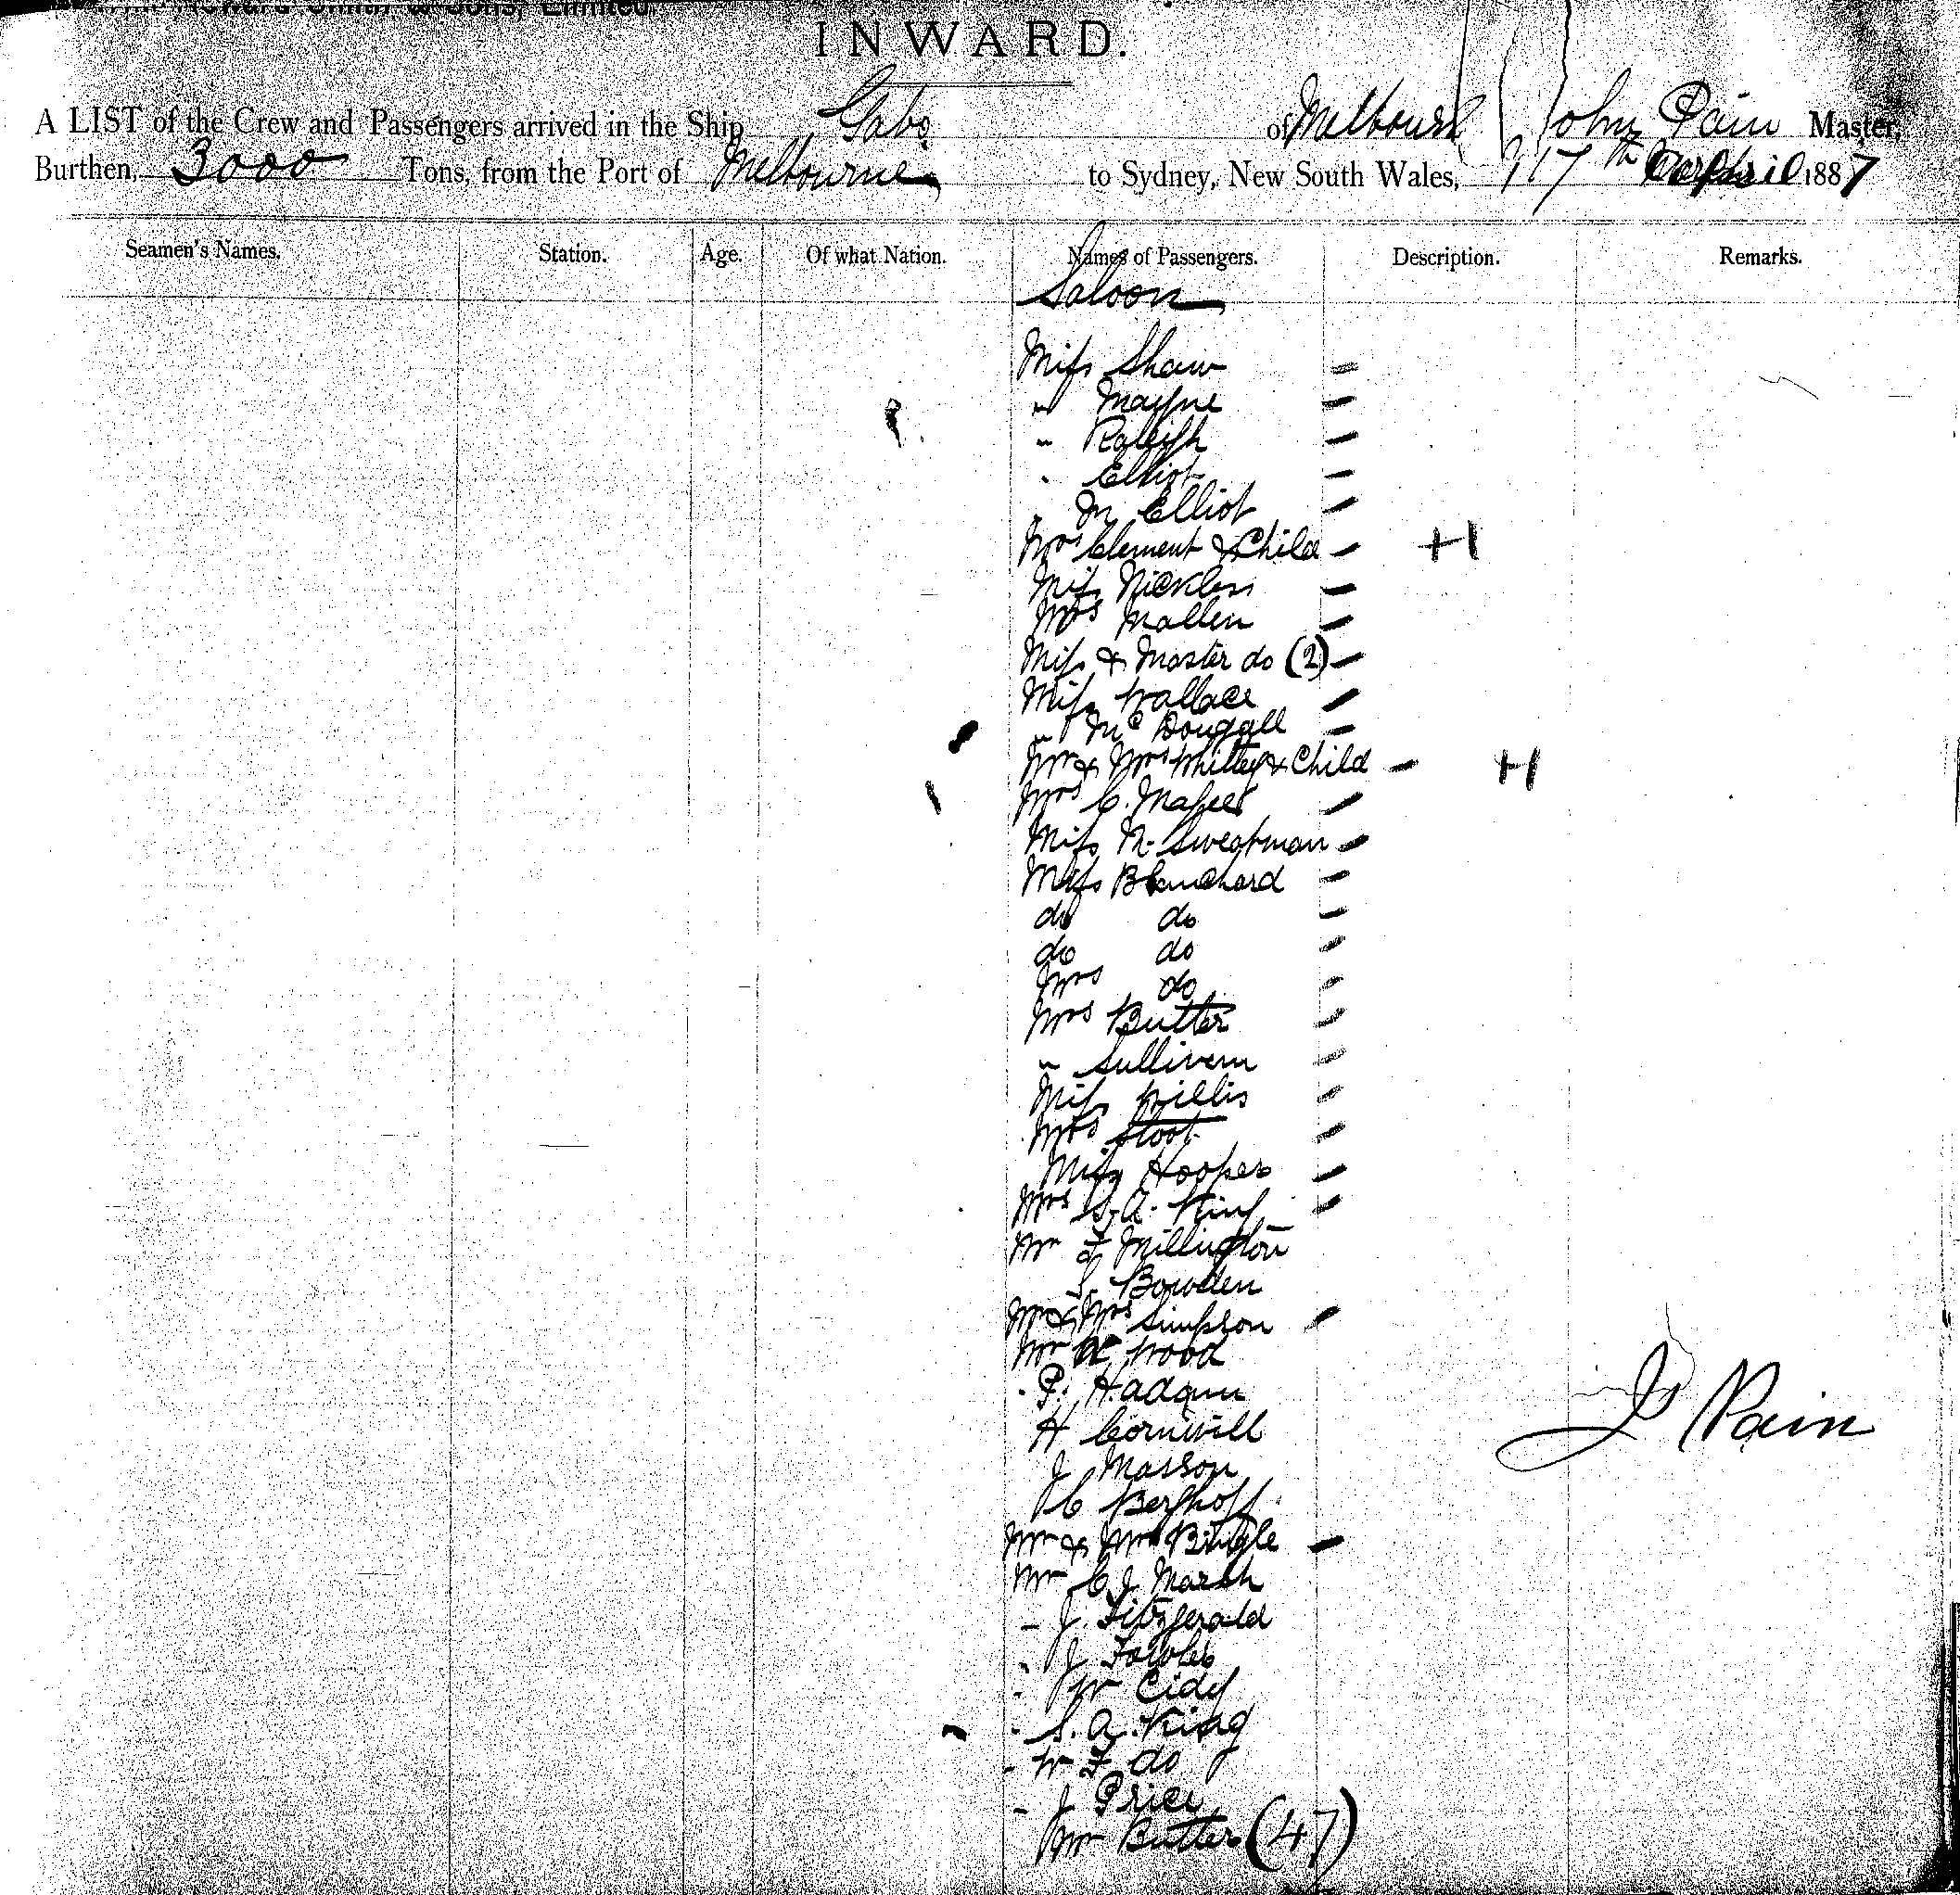 Howard Smith & Sons, Limited
INWARD.
A LIST of the Crew and Passengers arrived in the Ship Gabo of Melbourne John Pain Master,
Burthen, 3000 Tons, from the Port of Melbourne to Sydney, New South Wales, 17th April 1887
Seamen's Names. Station. Age. Of what Nation. Names of Passengers. Description. Remarks.
Saloon
Miss Shaw
" Mayne
" Raleigh
" Elliot
" M Elliot
Mrs Clement & Child +1
Miss Nickless
Mrs Mallen
Miss & Master do (2)
Miss Wallace
" McDougall
Mr & Mrs Whitty & Child +1
Mrs C.
Miss M. Sweatman
Miss Blanchard
do do
do do
Mrs do
Mrs Butter
" Sullivan
Miss Willis
Mrs Stoot
Miss Hooper
Mrs S. A. King
Mr F Millington
S. Bowden
Mr & Mrs Simpson
Mr Wood
P. Hadam
H Cornwill
J Masson
C Berghoff
Mr & Mrs Bingle
Mr C J Marsh
" J. Fitzgerald
" J Fowles
" W Cidy
" S. A. King
" W F do
" J Price
Mr Butter (47)
J Pain